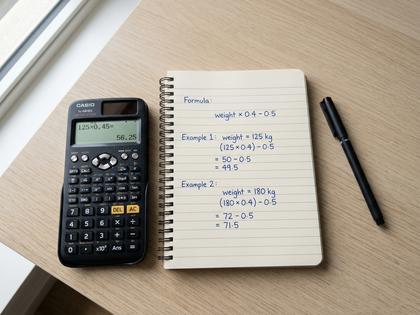 CASIO
125×0.45=
56.25
DEL AC
7 8 9
4 5 6 × ÷
1 2 3 + −
0 . ×10ˣ Ans =
Formula:
weight × 0.4 − 0.5
Example 1: weight = 125 kg
(125×0.4) − 0.5
= 50 − 0.5
= 49.5
Example 2:
weight = 180 kg
(180×0.4) − 0.5
= 72 − 0.5
= 71.5